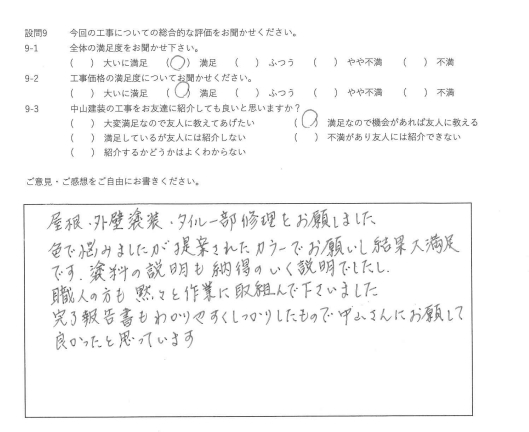 設問9 今回の工事についての総合的な評価をお聞かせください。
9-1 全体の満足度をお聞かせ下さい。
( ) 大いに満足 (○) 満足 ( ) ふつう ( ) やや不満 ( ) 不満
9-2 工事価格の満足度についてお聞かせください。
( ) 大いに満足 (○) 満足 ( ) ふつう ( ) やや不満 ( ) 不満
9-3 中山建装の工事をお友達に紹介しても良いと思いますか?
( ) 大変満足なので友人に教えてあげたい (○) 満足なので機会があれば友人に教える
( ) 満足しているが友人には紹介しない ( ) 不満があり友人には紹介できない
( ) 紹介するかどうかはよくわからない
ご意見・ご感想をご自由にお書きください。
屋根・外壁塗装・タイル一部修理をお願いしました、
色で悩みましたが提案されたカラーでお願いし結果大満足
です。塗料の説明も納得のいく説明でしたし、
職人の方も黙々と作業に取組んで下さいました
完了報告書もわかりやすくしっかりしたもので中山さんにお願いして
良かったと思っています